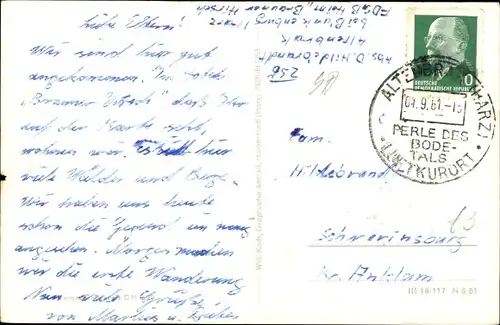 Liebe Eltern!
Wir sind hier gut
angekommen. Im
"Brauner Hirsch" das Ihr
auf der Karte seht,
wohnen wir. Es sind hier
viele Wälder und Berge.
Wir haben uns heute
schon die Gegend ein wenig
angesehen. Morgen machen
wir die erste Wanderung
Nun viele Grüße
von
Abs. D. Hildebrandt
25b
Altenbrak
bei Blankenburg Harz
FDGB Heim, Brauner Hirsch
58
DEUTSCHE
DEMOKRATISCHE REPUBLIK
10
ALTENBRAK (HARZ)
04.9.61.-15
PERLE DES
BODE-
TALS
LUFTKURORT
Fam.
Hildebrand
Schwerinsburg
Kr. Anklam
13
III 18 117 N 6/61